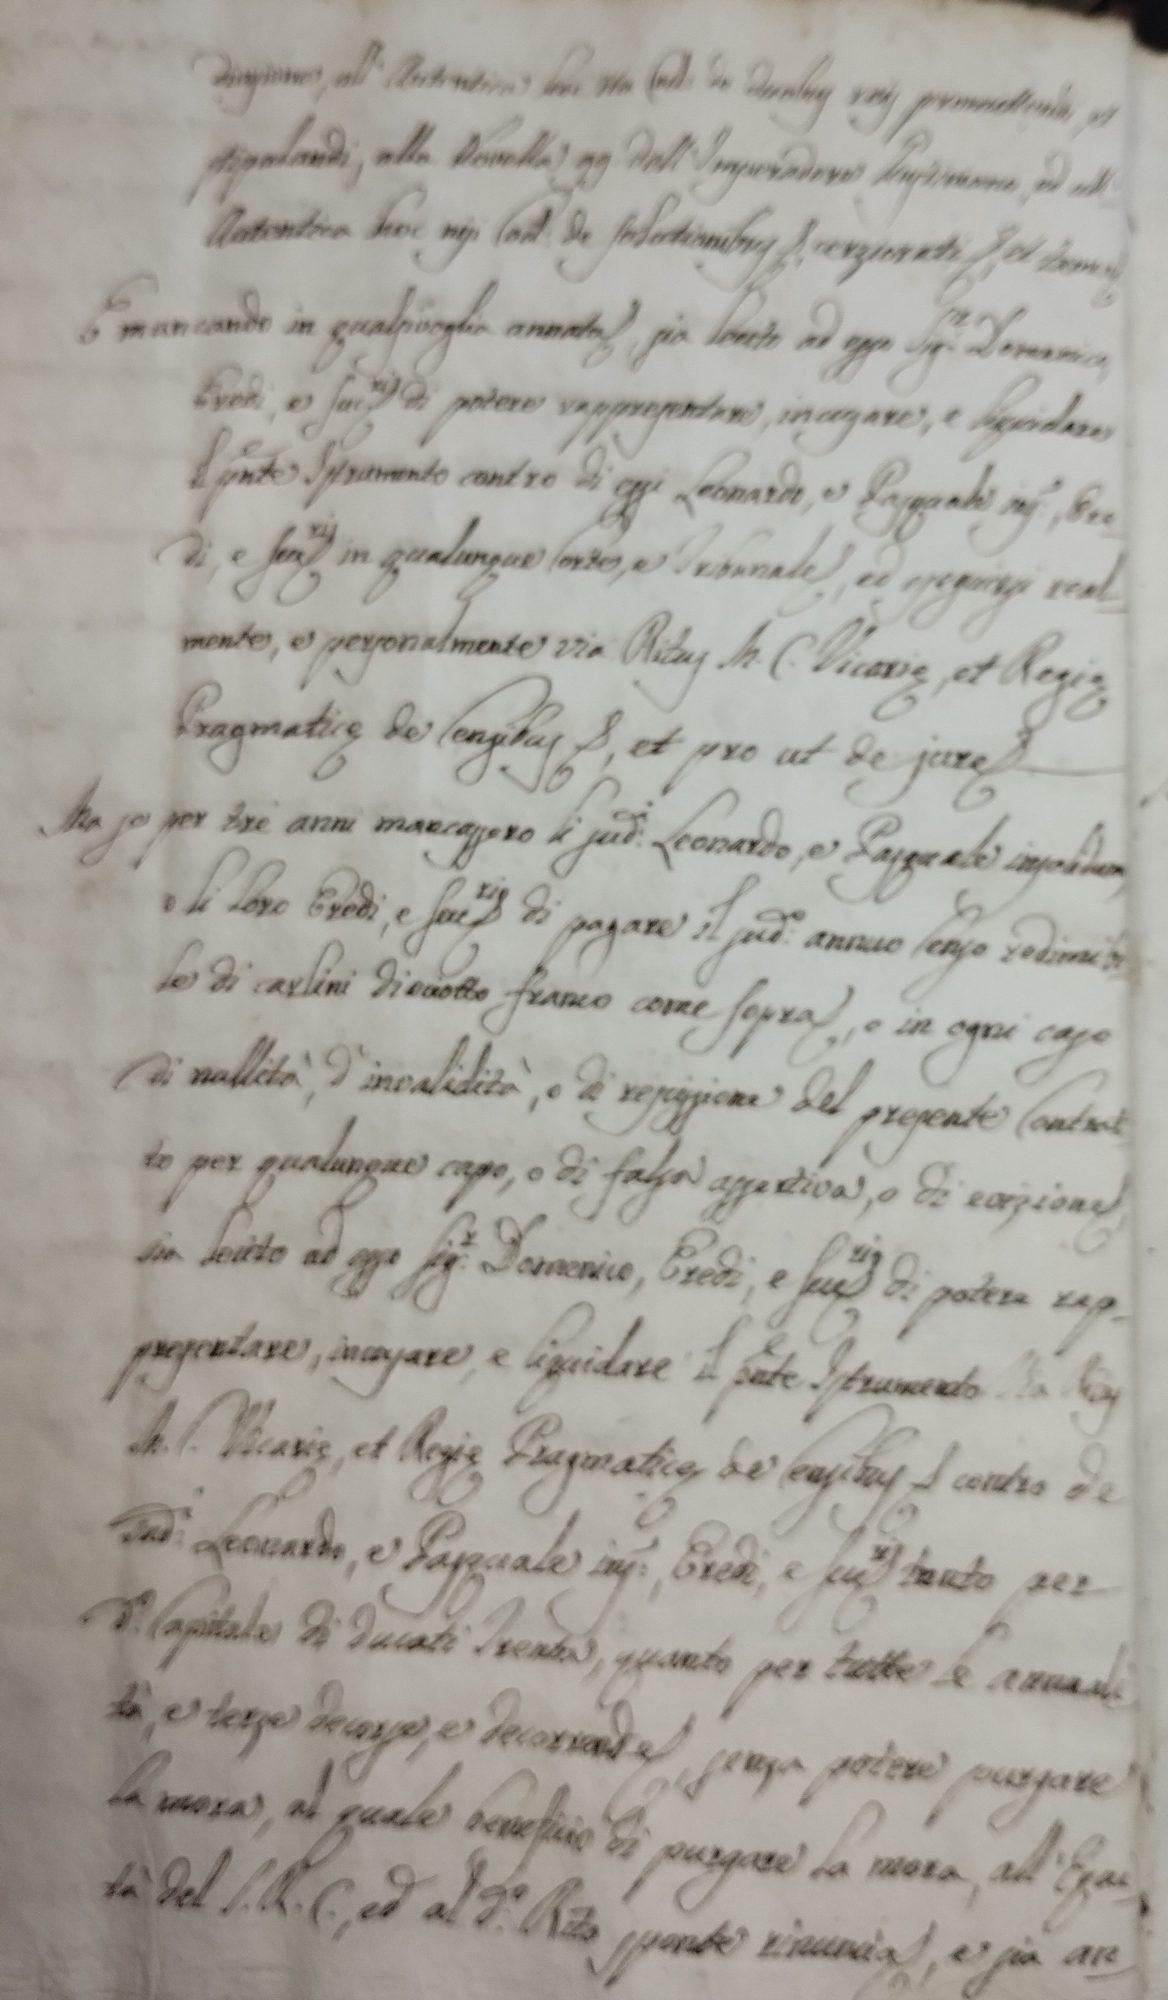 all' Autentica hoc ita Cod: de duobus reis promittendi, et
stipulandi, alla Novella 99 dell' Imperadore Giustiniano, ed all'
Autentica hoc nisi Cod: de solutionibus, cerziorati, et
E mancando in qualsivoglia annata, sia lecito ad esso Sig.r Domenico,
Eredi, e Succ.ri di potere rappresentare, incusare, e liquidare
il pnte Istrumento contro di essi Leonardo, e Pasquale ins:, Ere-
di, e Succ.ri in qualunque Corte, e Tribunale, ed eseguirsi real-
mente, e personalmente via Ritus M. C. Vicarię, et Regię
Pragmaticę de Censibus, et pro ut de jure
Ma se per tre anni mancassero li sud.i Leonardo, e Pasquale insolidum,
o li loro Eredi, e Succ.ri di pagare il sud.o annuo Censo redimibi
le di carlini dieciotto franco come sopra, o in ogni caso
di nullità, d' invalidità, o di rescissione del presente Contrat
to per qualunque capo, o di falsa assertiva, o di evizione,
sia lecito ad esso Sig.r Domenico, Eredi, e Succ.ri di potere rap-
presentare, incusare, e liquidare il pnte Istrumento via Ritus
M. C. Vicarię, et Regię Pragmaticę de Censibus contro de
sud.i Leonardo, e Pasquale ins:, Eredi, e Succ.ri tanto per
d.o Capitale di ducati trenta, quanto per tutte le annuali
tà, e terze decorse, e decorrende, senza potere purgare
la mora, al quale beneficio di purgare la mora, all' Equi-
tà del S. R. C., ed al d.o Rito sponte rinuncia, e sia an-